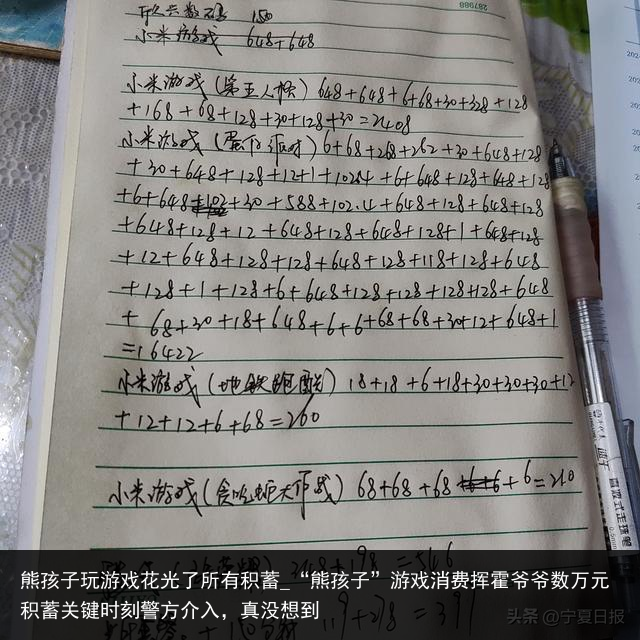 287988
150
小米游戏 648+648
小米游戏(第五人格) 648+648+6+68+30+328+128
+168+68+128+30+128+30=2408
小米游戏(蛋仔派对) 6+68+268+262+30+648+128
+30+648+128+12+1+102.4+6+648+128+648+128
+6+648+30+588+102.4+648+128+648+128
+648+128+12+648+128+648+128+1+648+128
+12+648+128+128+648+128+118+128+648
+128+1+128+6+648+128+128+128+128+648
+68+30+18+648+6+6+68+68+30+12+648+1
=16422
小米游戏(地铁跑酷) 18+18+6+18+30+30+30+12
+12+12+6+68=260
小米游戏(贪吃蛇大作战) 68+68+68+6=210
348+198=546
熊孩子玩游戏花光了所有积蓄_“熊孩子”游戏消费挥霍爷爷数万元
积蓄关键时刻警方介入，真没想到
头条 @宁夏日报
直液式走珠笔